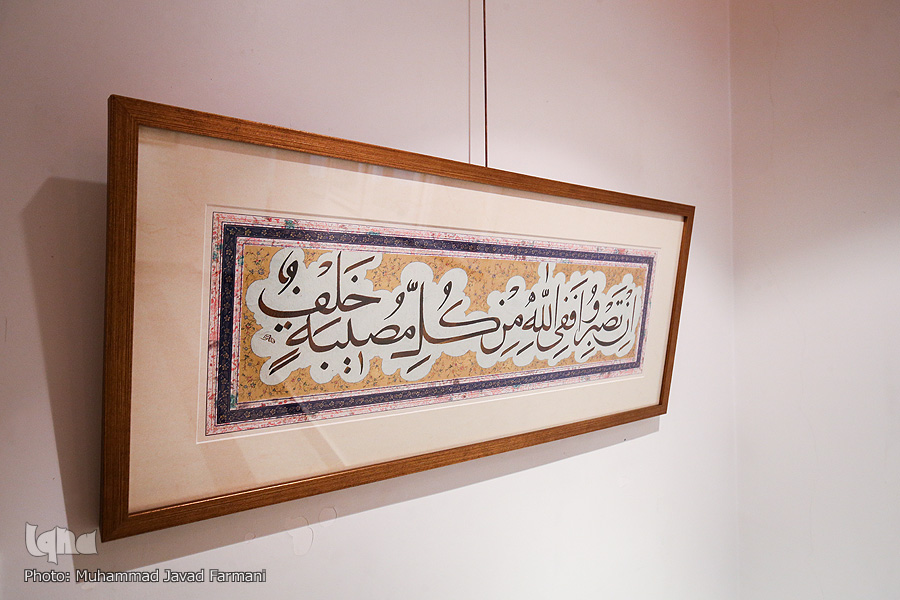 اِنْ تَصْبِرُوا فَفِی اللّٰهِ مِنْ كُلِّ مُصیبَةٍ خَلَفٌ
iqna
Photo: Muhammad Javad Farmani